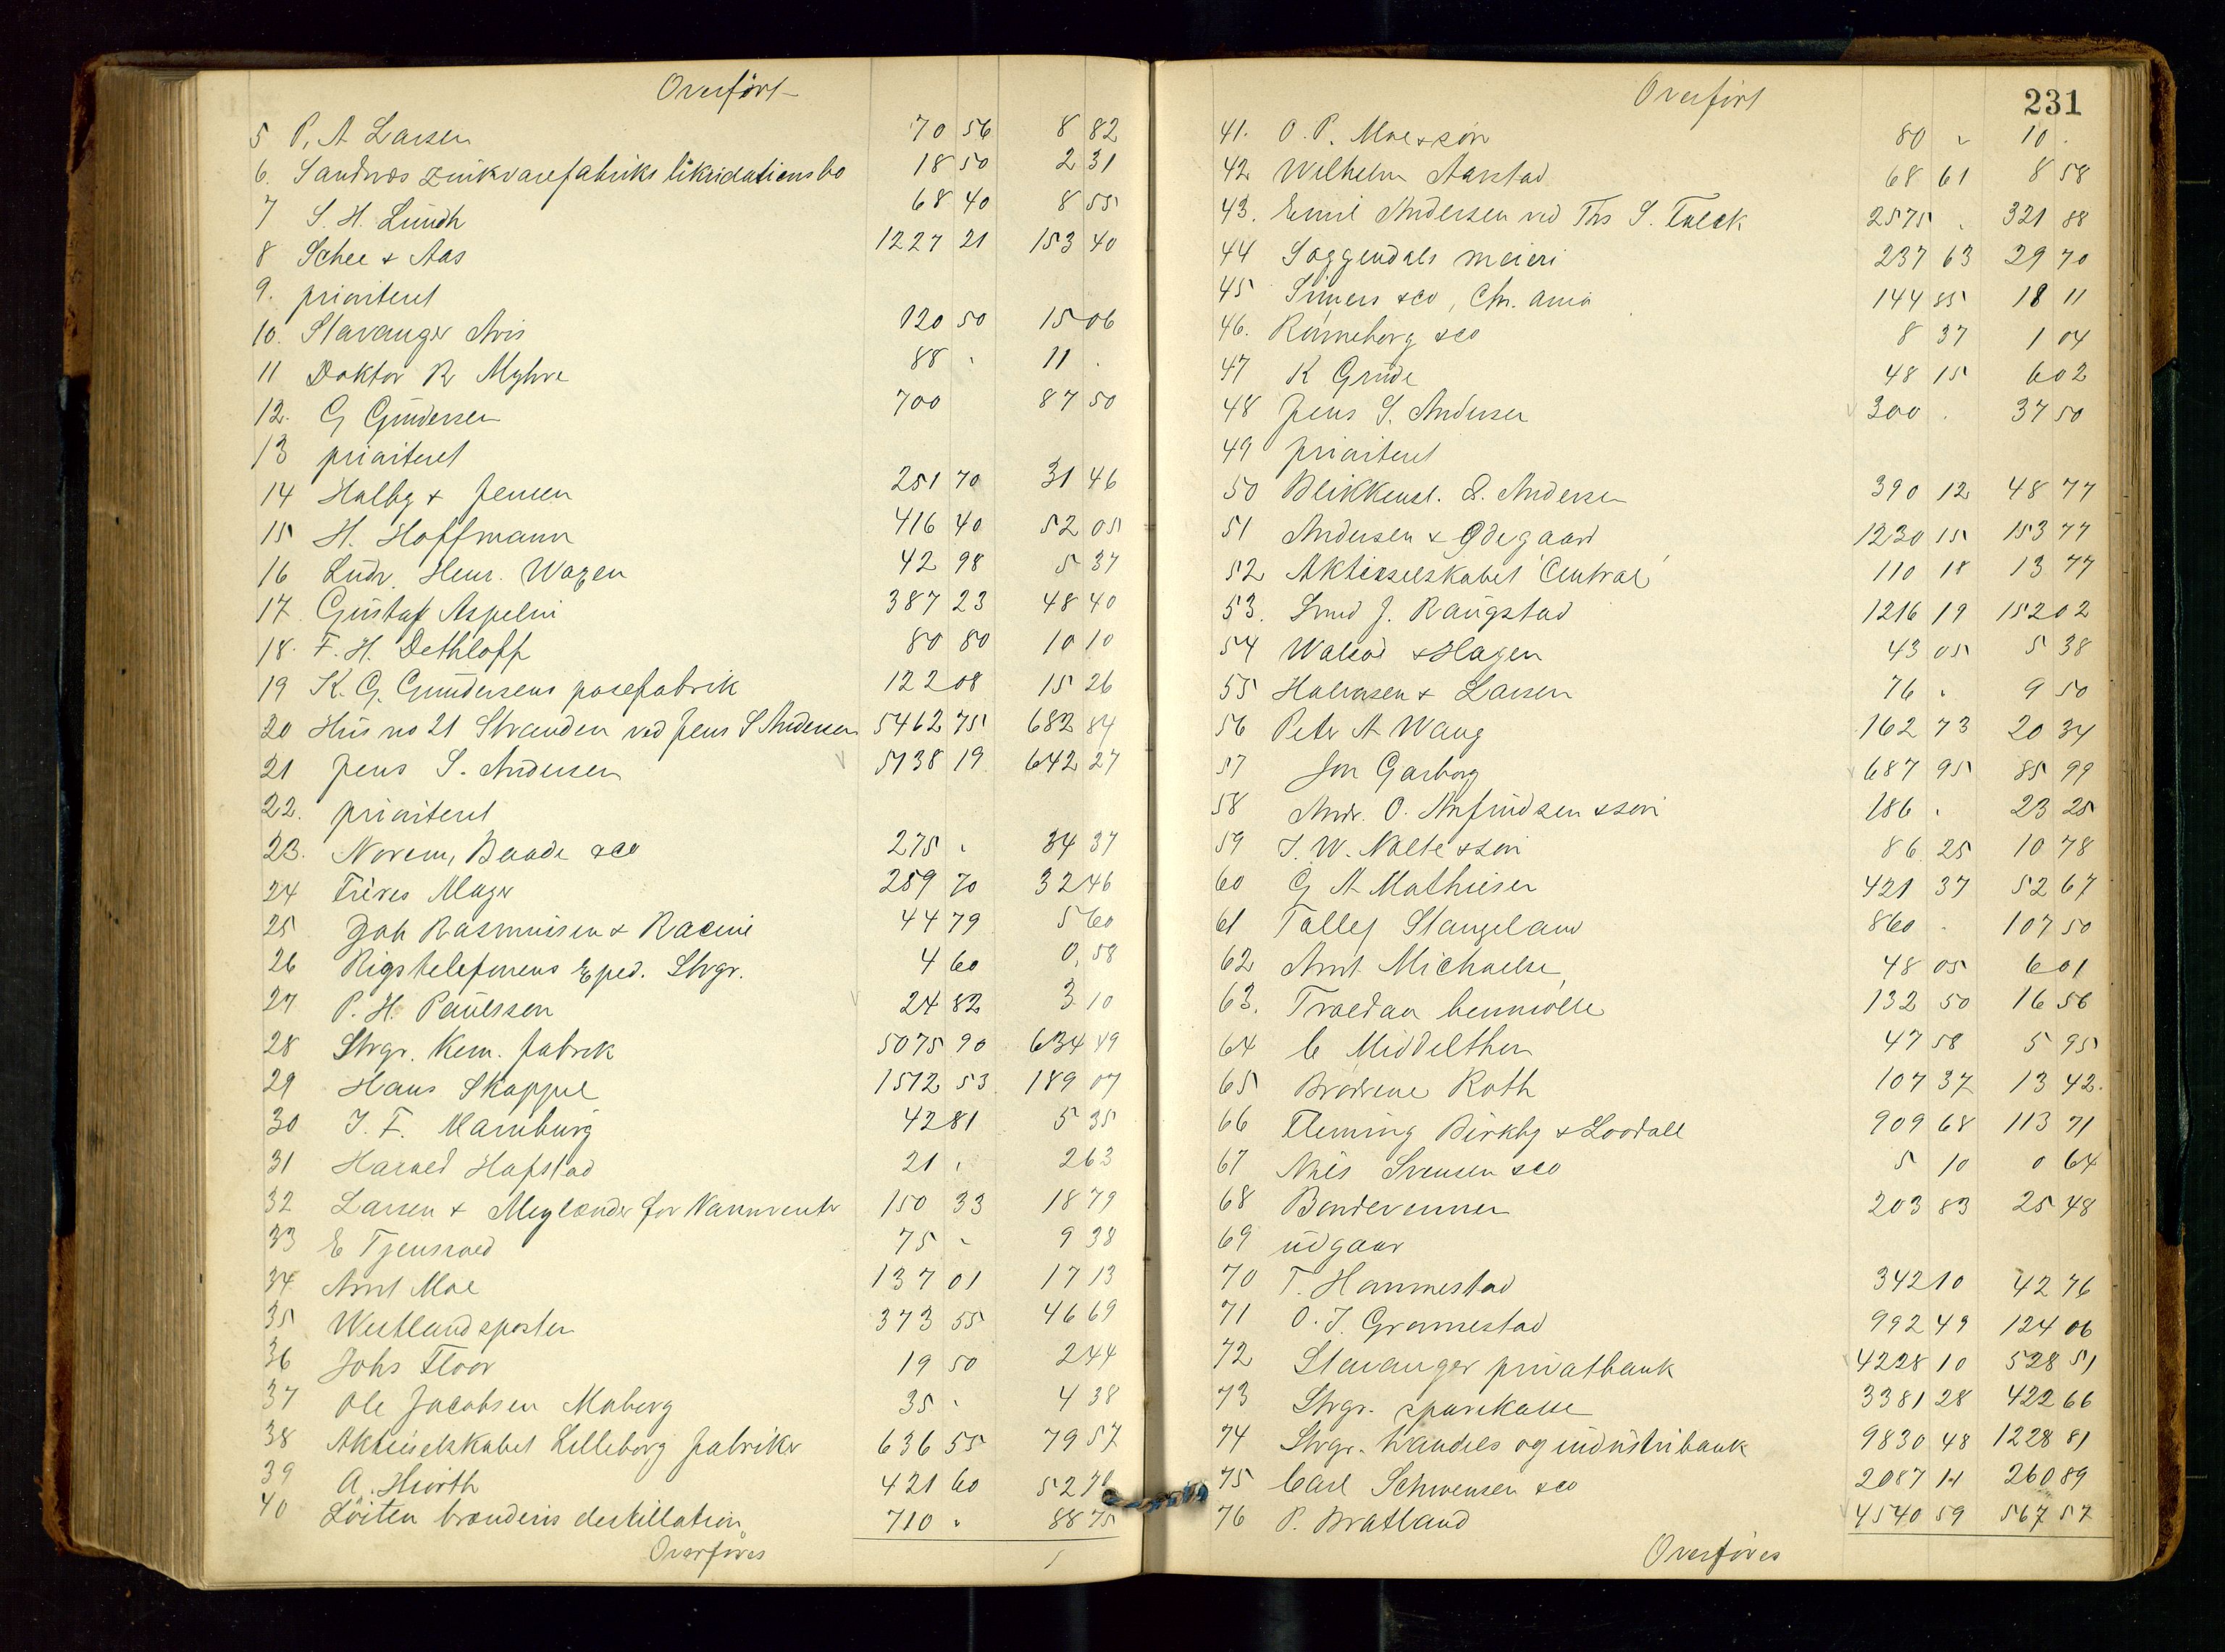 Overført
5 P. A. Larsen 70 56 8 82
6. Sandnæs zinkvarefabriks likvidationsbo 18 50 2 31
7 S. H. Lundh 68 40 8 55
8 Schee & Aas 1227 21 153 40
9. prioriteret
10. Stavanger Avis 120 50 15 06
11 Doktor R Myhre 88 - 11 -
12. G Gundersen 700 87 50
13 prioriteret
14 Halby & Jensen 251 70 31 46
15 H. Hoffmann 416 40 52 05
16 Ludv. Henr. Wagen 42 98 5 37
17. Gustaf Aspelin 387 23 48 40
18. F. H. Dethloff 80 80 10 10
19 K. G. Gundersens posefabrik 122 08 15 26
20 Hus no 21 Stranden ved Jens S Andersen 5462 75 682 84
21 Jens S. Andersen 5138 19 642 27
22. prioriteret
23. Norem, Baade & co 275 - 34 37
24 Frères Mager 259 70 32 46
25 Joh Rasmussen & Racine 44 79 5 60
26 Rigstelefonens Exped. Stvgr. 4 60 0,58
27 P. H. Paulssen 24 82 3 10
28 Stvgr. Kem. fabrik 5075 90 634 49
29 Hans Skappel 1512 53 189 07
30 J. F. Mamburg 42 81 5 35
31 Harald Hafstad 21 - 2 63
32 Larsen & Meglænder for 150 33 18 79
33 E Tjensvold 75 - 9 38
34 Arnt Moe 137 01 17 13
35 Westlandsposten 373 55 46 69
36 Johs Floor 19 50 2 44
37 Ole Jacobsen Maberg 35 - 4 38
38 Aktieselskabet Lilleborg fabriker 636 55 79 57
39 A. Hiorth 421 60 52 70
40 Löiten brænderis destillation 710 - 88 75
Overføres
231
Overført
41. O. P. Moe & søn 80 - 10 -
42 Wilhelm Aarstad 68 61 8 58
43. Emil Andersen ved Ths S. Falck 2575 - 321 88
44 Soggendals meieri 237 63 29 70
45 Simers & co, Chr. ania 144 85 18 11
46. Rönneborg & co 8 37 1 04
47 K Grude 48 15 6 02
48 Jens S. Andersen 300 - 37 50
49 prioriteret
50 Blikkensl. S. Andersen 390 12 48 77
51 Andersen & Ødegaard 1230 15 153 77
52 Aktieselskabet "Central" 110 18 13 77
53. Svend J. Raugstad 1216 19 152 02
54 Walsøe & Hagen 43 05 5 38
55 Halvorsen & Larsen 76 - 9 50
56 Peter A Waug 162 73 20 34
57 Jon Garborg 687 95 85 99
58 Andr. O. Anfindsen & søn 186 - 23 25
59 J. W. Nolte & søn 86 25 10 78
60 G A Mathiesen 421 37 52 67
61 Tollef Stangeland 860 - 107 50
62 Arnt Michaelsen 48 05 6 01
63. Traedaa 132 50 16 56
64 C Middelthon 47 58 5 95
65 Brødrene Roth 107 37 13 42
66 Fleming Birkby & Goodall 909 68 113 71
67 Nils Svensen & co 5 10 0 64
68 Bondevennen 203 83 25 48
69 udgaar
70 T. Hommestad 342 10 42 76
71 O. J. Grønnestad 992 49 124 06
72 Stavanger privatbank 4228 10 528 51
73 Stvgr. sparekasse 3381 28 422 66
74 Stvgr. handels og industribank 9830 48 1228 81
75 Carl Schwensen & co 2087 14 260 89
76 P. Bratland 4540 59 567 57
Overføres